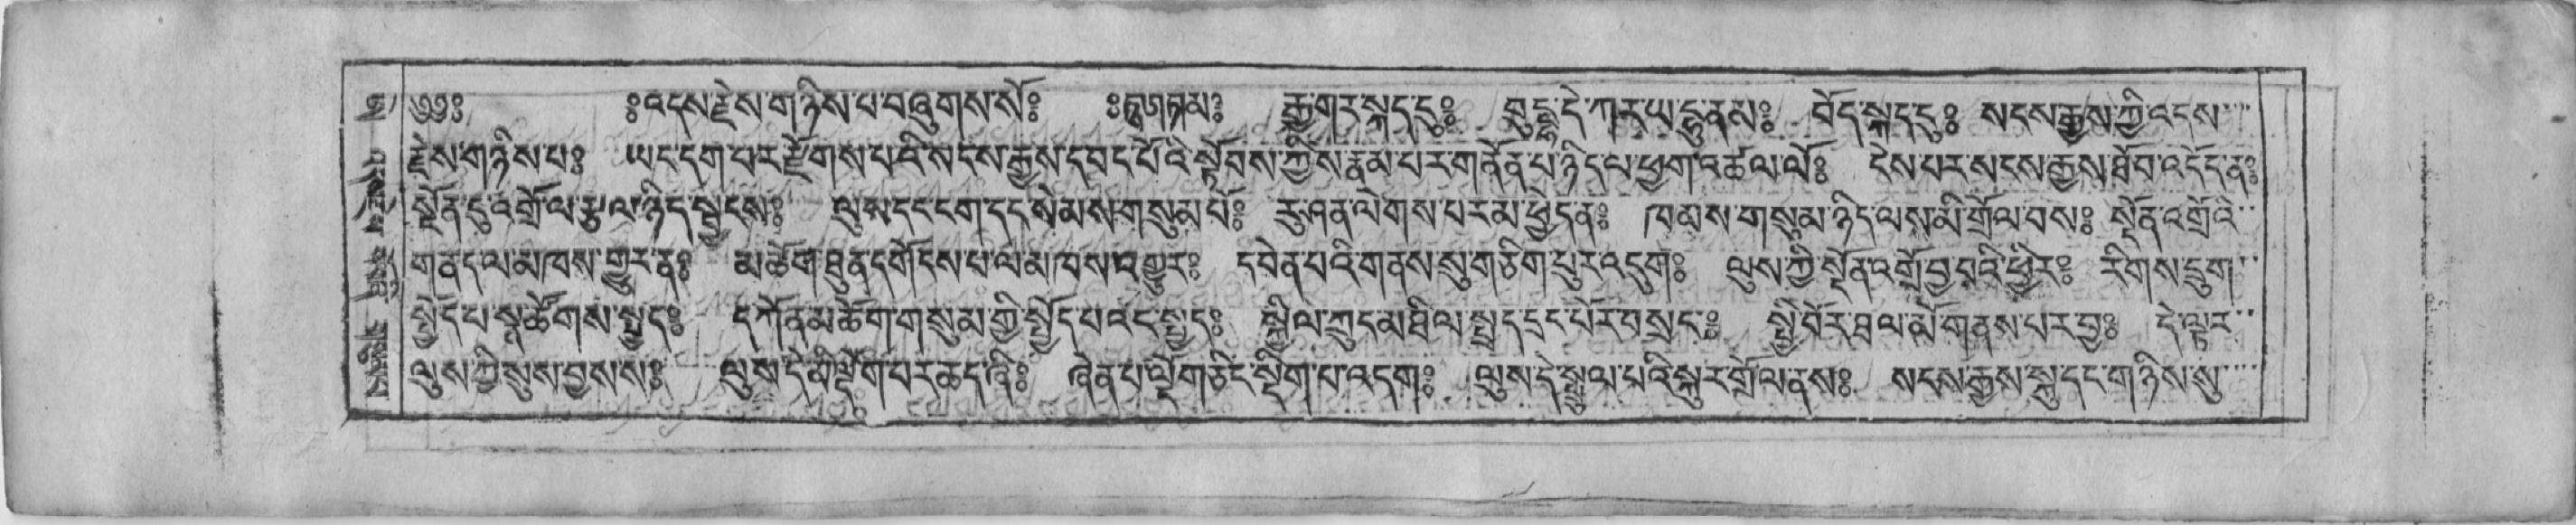 ༄༅༔ ༔འདས་རྗེས་གཉིས་པ་བཞུགས་སོ༔ ༔ རྒྱ་གར་སྐད་དུ༔ བུདྡྷ་དེ་ཀ་རཡ་དྷུནམ༔ བོད་སྐད་དུ༔ སངས་རྒྱས་ཀྱི་འདས
རྗེས་གཉིས་པ༔ ཡང་དག་པར་རྫོགས་པའི་སངས་རྒྱས་དབང་པོའི་སྟོབས་ཀྱིས་རྣམ་པར་གནོན་པ་ཉིད་ལ་ཕྱག་འཚལ་ལོ༔ ངེས་པར་སངས་རྒྱས་ཐོབ་འདོད་ན༔
སྔོན་དུ་འགྲོ་ལ་རྩལ་ཉིད་སྦྱངས༔ ལུས་དང་ངག་དང་སེམས་གསུམ་པོ༔ རུ་ཤན་ལེགས་པརམ་ཕྱེད་ན༔ ཁམས་གསུམ་ཉིད་ལས་མི་གྲོལ་བས༔ སྔོན་འགྲོའི
གནད་ལ་མཁས་གྱུར་ན༔ མཆོག་ཐུན་དགོངས་པ་ལ་མཁས་འགྱུར༔ དབེན་པའི་གནས་སུ་གཅིག་པུར་འདུག༔ ལུས་ཀྱི་སྔོན་འགྲོ་བྱ་བའི་ཕྱིར༔ རིགས་དྲུག
སྤྱོད་པ་སྣ་ཚོགས་སྤྱད༔ དཀོན་མཆོག་གསུམ་གྱི་སྤྱོད་པ་འང་སྤྱད༔ སྐྱིལ་ཀྲུང་མཐིལ་སྤྲད་དྲང་པོར་བསྲང༔ སྤྱི་བོར་ཐལ་མོ་གནས་པར་བྱ༔ དེ་ལྟར
ལུས་ཀྱི་སུས་བྱས་ས༔ ལུས་དེ་མི་ལྡོག་བར་ཆད་ཞི༔ ཞེན་པ་ལྡོག་ཅིང་སྡིག་པ་འདག༔ ལུས་དེ་སྤྲུལ་པའི་སྐུར་གྲོལ་ནས༔ སངས་རྒྱས་སྐུ་དང་གཉིས་སུ